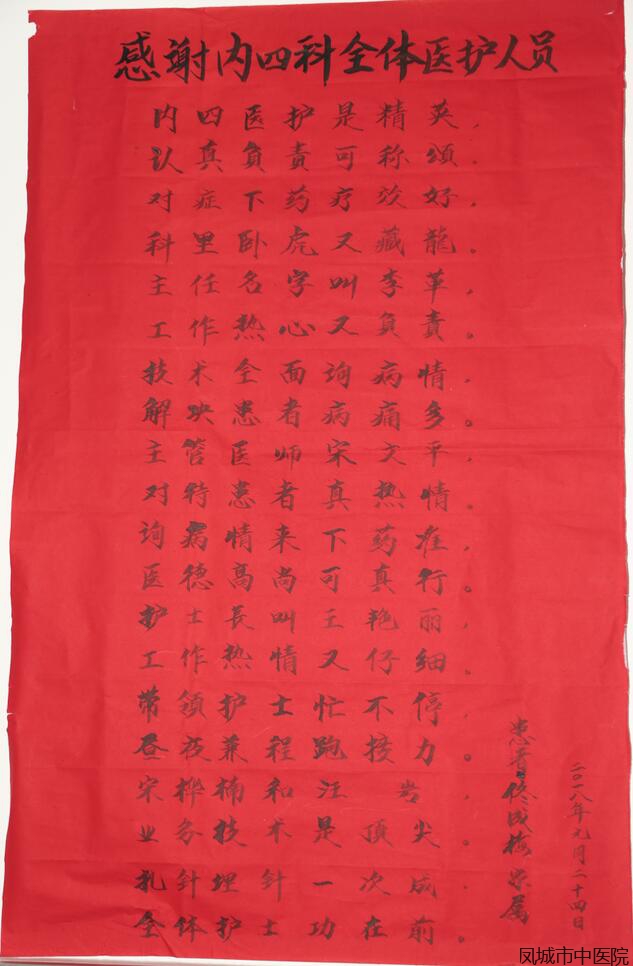 感谢内四科全体医护人员
内四医护是精英，
认真负责可称颂．
对症下药疗效好，
科里卧虎又藏龍。
主任名字叫李革，
工作热心又负责。
技术全面询病情，
解决患者病痛多。
主管医师宋文平，
对待患者真热情。
询病情来下药准，
医德高尚可真行。
护士長叫王艳丽，
工作热情又仔细。
带领护士忙不停，
昼夜兼程跑接力。
宋桦楠和汪岩，
业务技术是顶尖。
扎针埋针一次成，
全体护士功在前。
患者佟成梅家属
二〇一八年元月二十四日
凤城市中医院